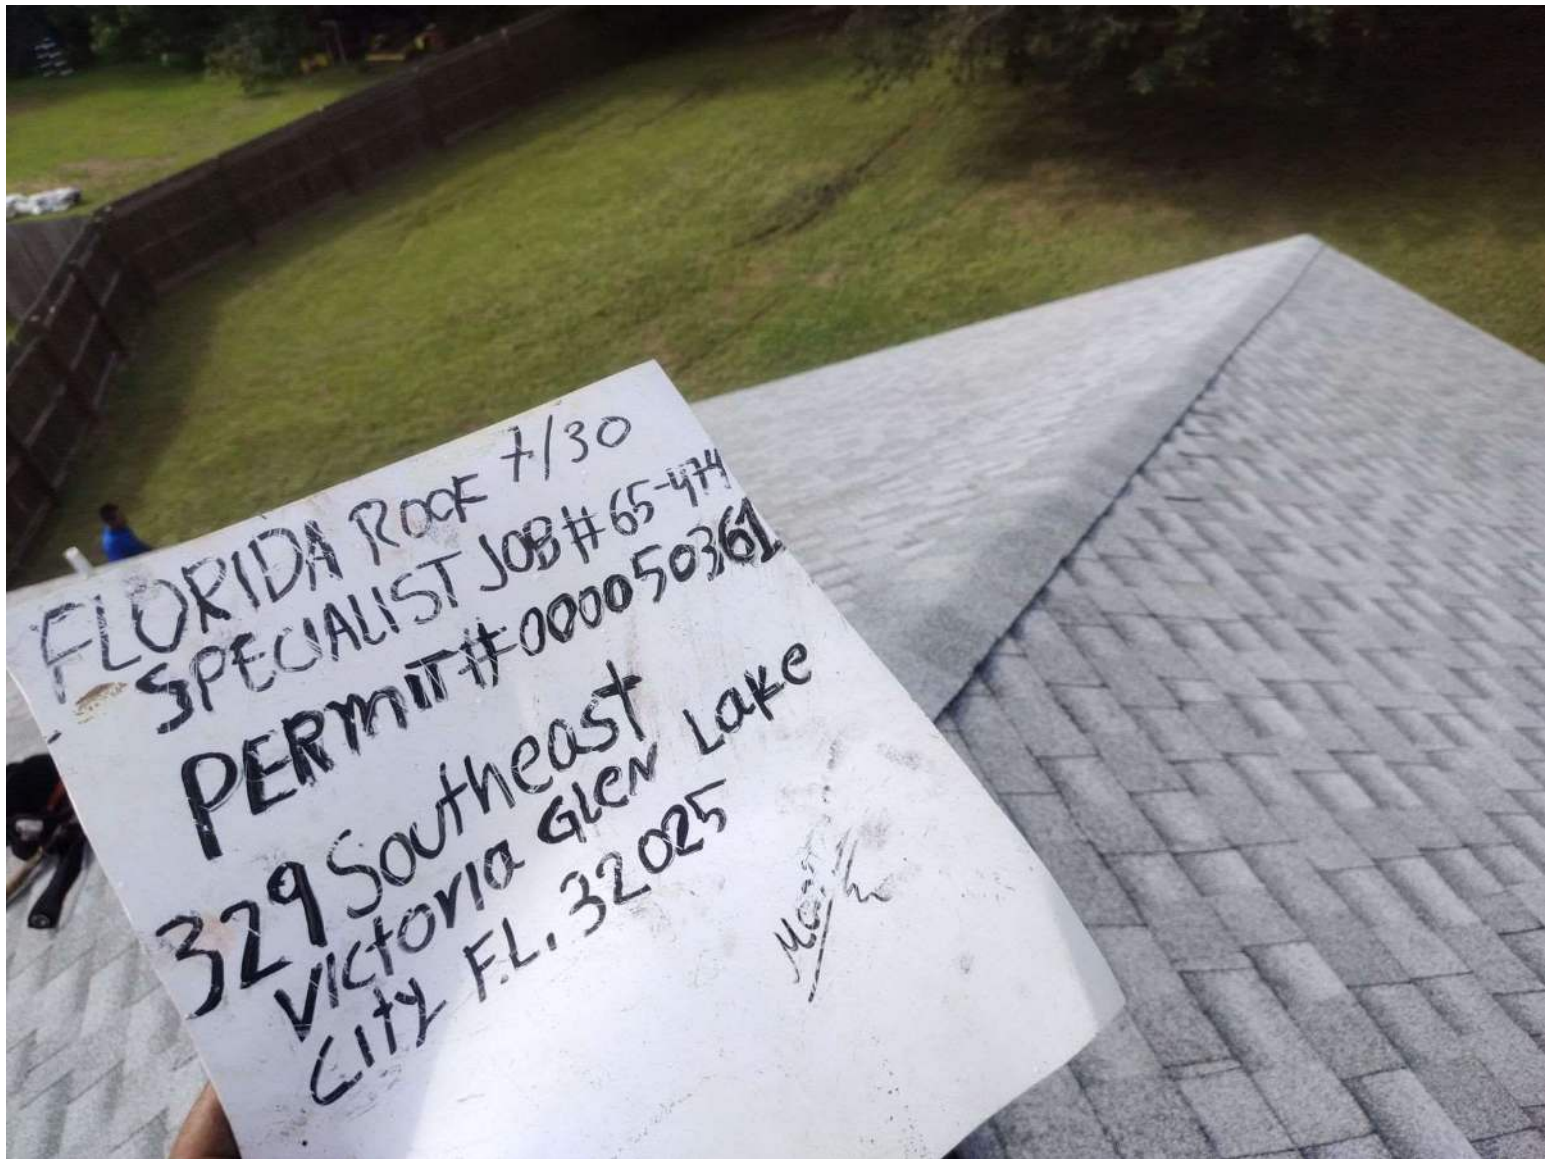 FLORIDA ROOF 7/30
SPECIALIST JOB # 65-474
PERMIT# 000050361
329 Southeast
Victoria Glen Lake
City FL. 32025